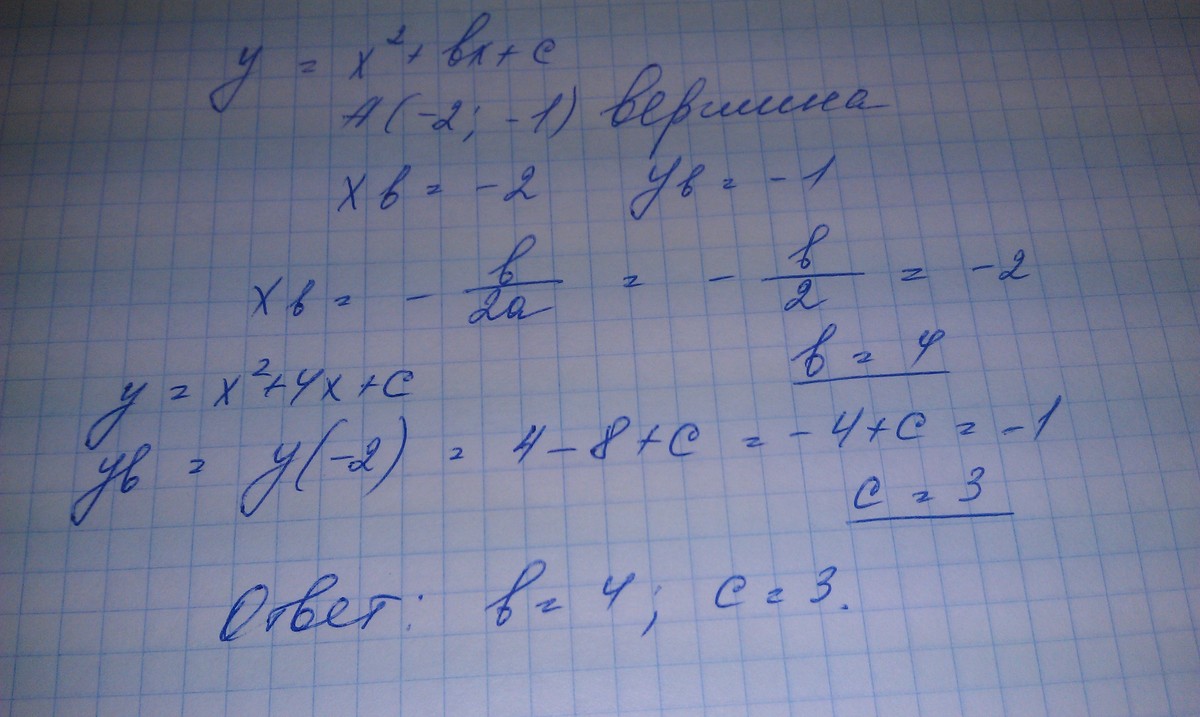 y = x² + bx + c
A(-2; -1) вершина
xв = -2 yв = -1
xв = - b/2a = - b/2 = -2
b = 4
y = x² + 4x + c
yв = y(-2) = 4 - 8 + c = -4 + c = -1
c = 3
Ответ: b = 4; c = 3.